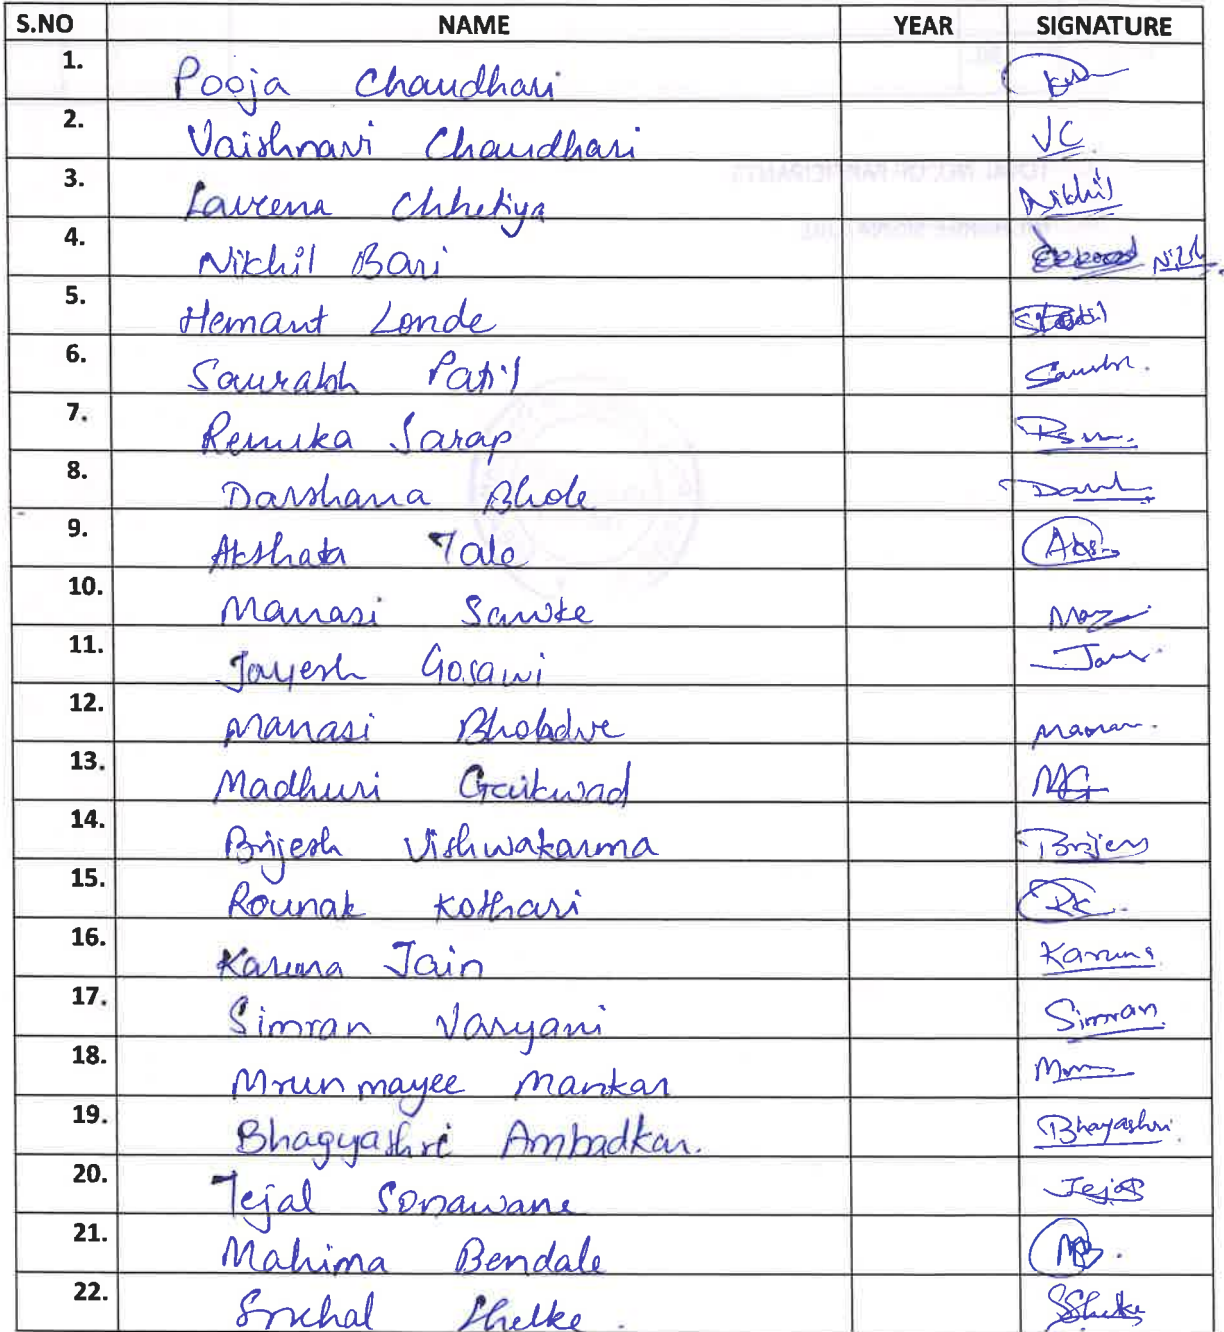 S.NO NAME YEAR SIGNATURE
1. Pooja Chaudhari
2. Vaishnavi Chaudhari VC
3. Laveena Chhetiya Nikhil
4. Nikhil Bari
5. Hemant Londe
6. Saurabh Patil
7. Renuka Sarap
8. Darshana Bhole
9. Akshata Tale
10. Manasi Sawke
11. Jayesh Gosawi
12. Manasi
13. Madhuri Gaikwad MG
14. Brijesh Vishwakarma
15. Rounak Kothari RK.
16. Karuna Jain Karuna
17. Simran Varyani Simran.
18. Mrunmayee Mankar
19. Bhagyashri Ambadkar. Bhayashri.
20. Tejal Sonawane Tejal
21. Mahima Bendale MB.
22. Snehal Shelke. SShelke